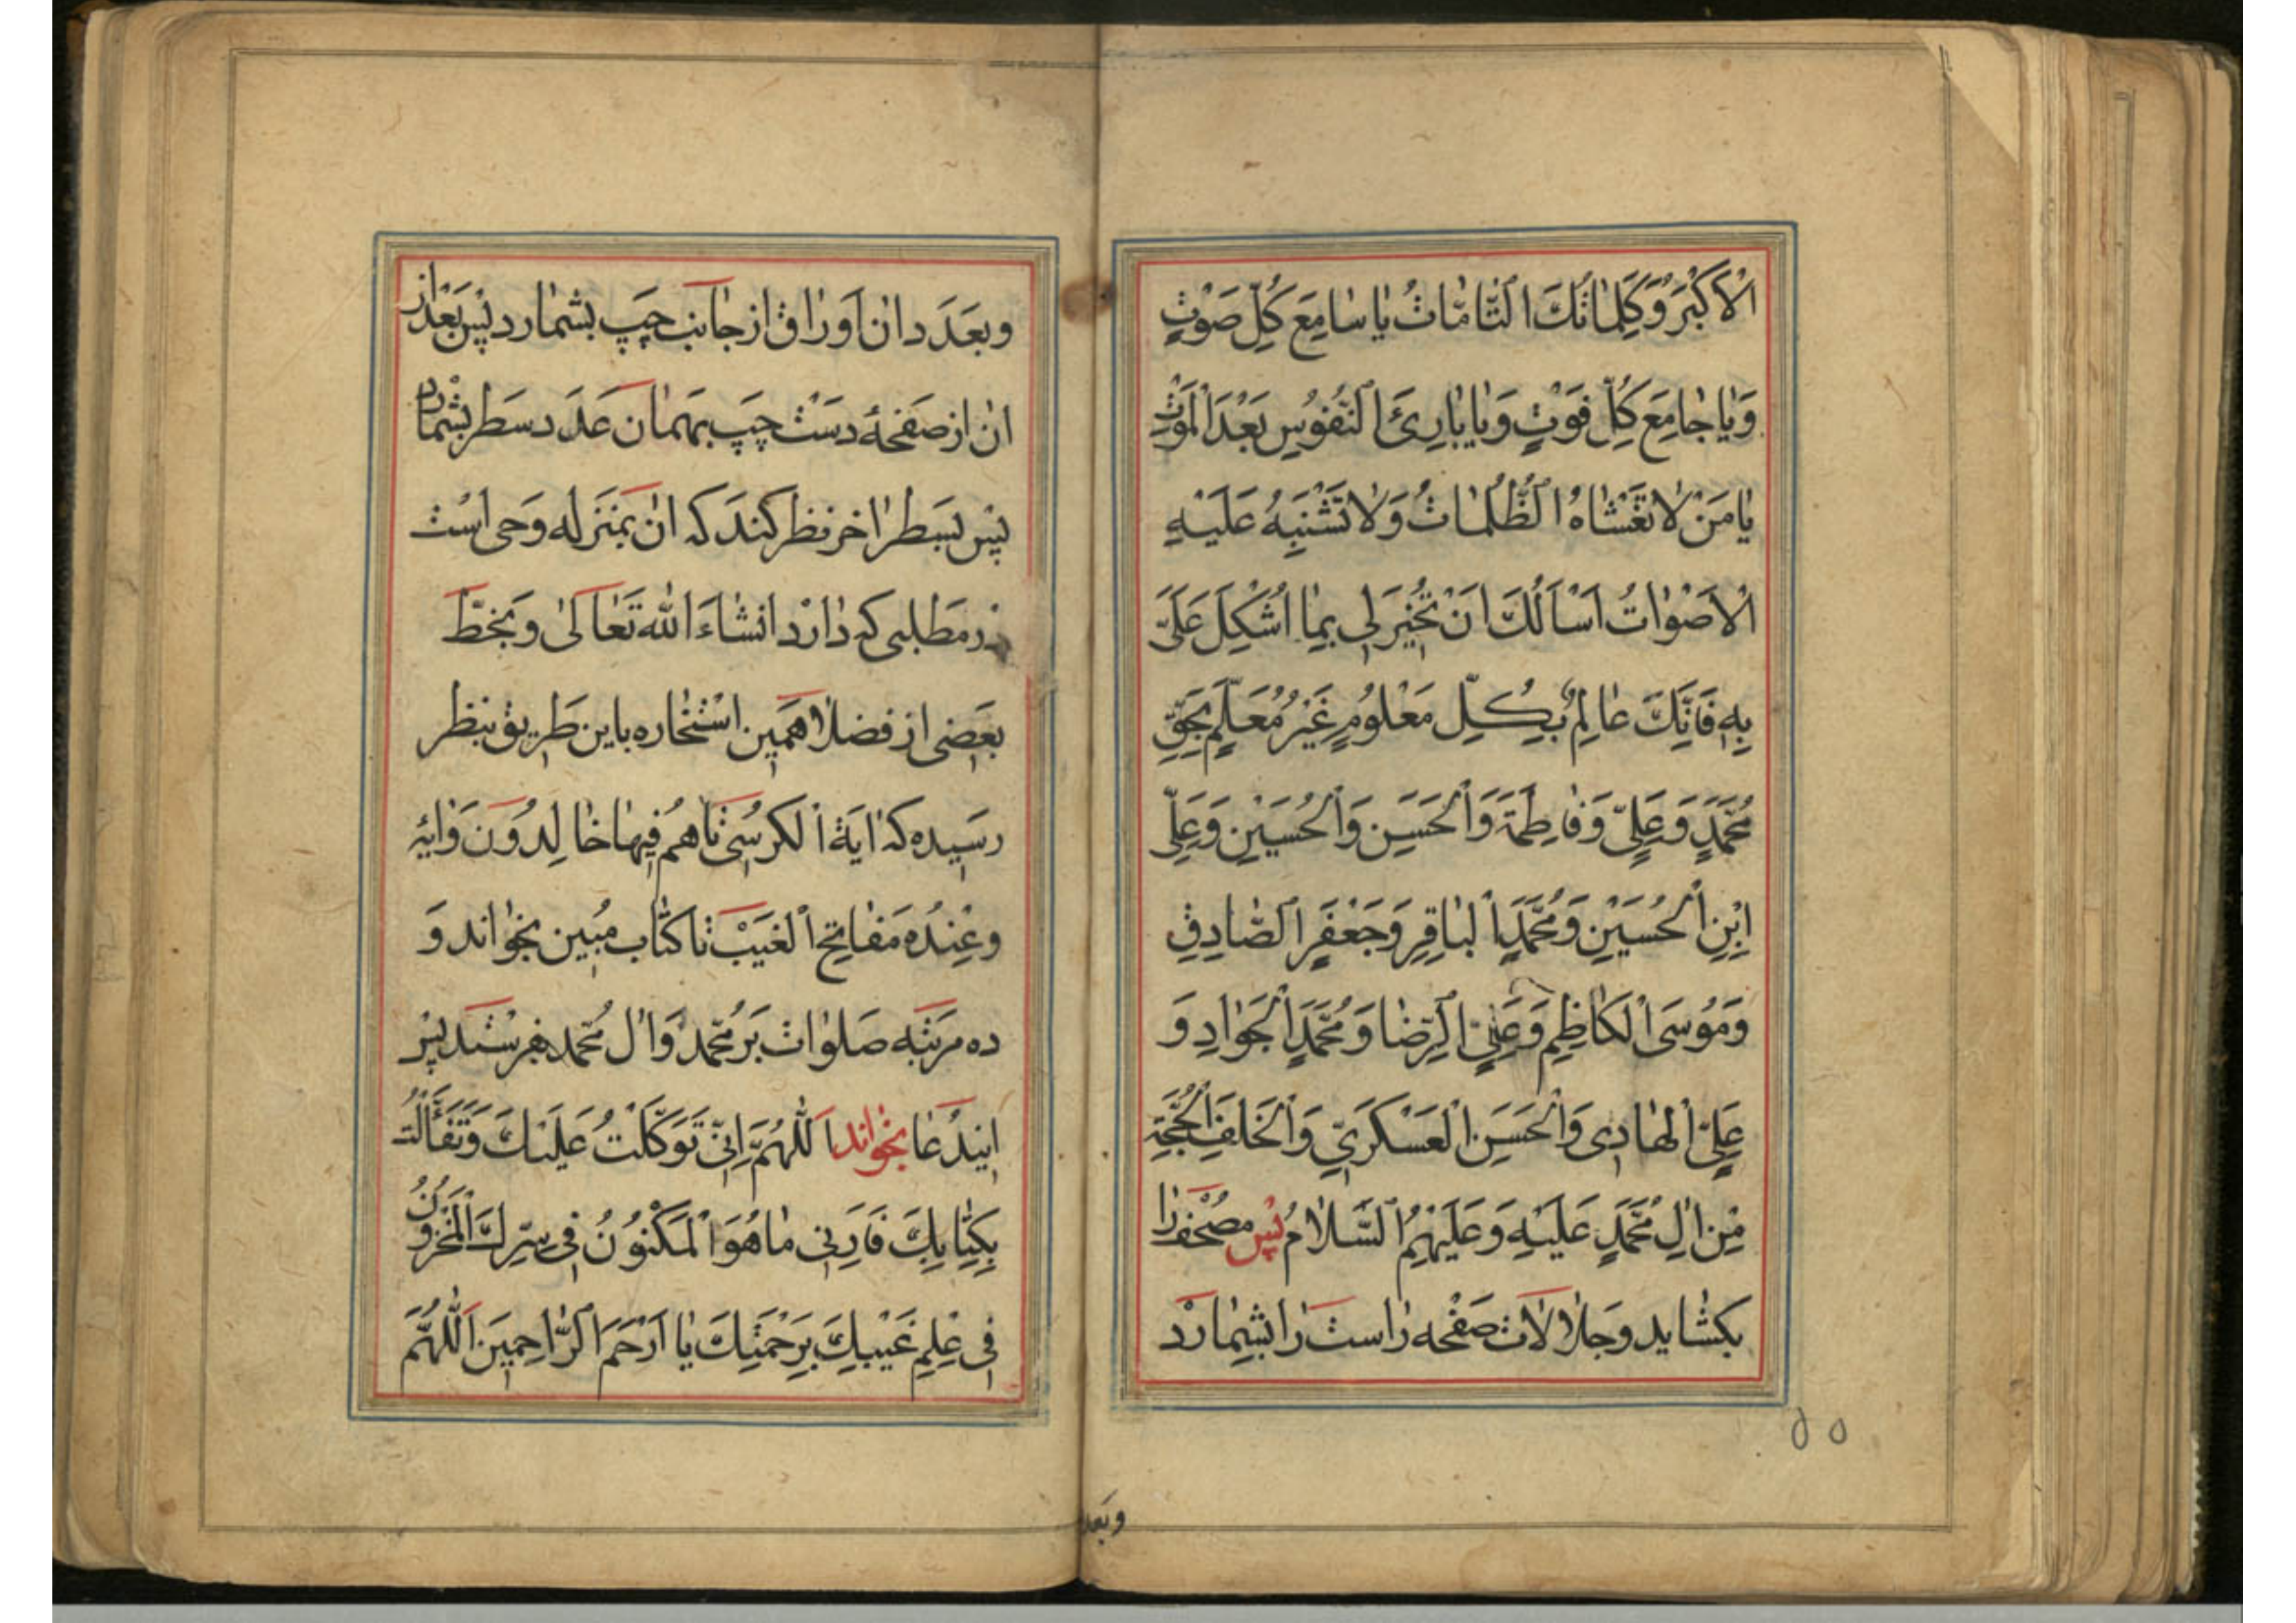 الْأَكْبَرِ وَكَلِمَاتُكَ التَّامَّاتُ يَا سَامِعَ كُلِّ صَوْتٍ
وَيَا جَامِعَ كُلِّ فَوْتٍ وَيَا بَارِئَ النُّفُوسِ بَعْدَ الْمَوْتِ
يَا مَنْ لَا تَغْشَاهُ الظُّلُمَاتُ وَلَا تَشْتَبِهُ عَلَيْهِ
الْأَصْوَاتُ أَسْأَلُكَ أَنْ تُخِيرَ لِي بِمَا أُشْكِلَ عَلَيَّ
بِهِ فَإِنَّكَ عَالِمٌ بِكُلِّ مَعْلُومٍ غَيْرُ مُعَلَّمٍ بِحَقِّ
مُحَمَّدٍ وَعَلِيٍّ وَفَاطِمَةَ وَالْحَسَنِ وَالْحُسَيْنِ وَعَلِيِّ
ابْنِ الْحُسَيْنِ وَمُحَمَّدٍ الْبَاقِرِ وَجَعْفَرٍ الصَّادِقِ
وَمُوسَى الْكَاظِمِ وَعَلِيٍّ الرِّضَا وَمُحَمَّدٍ الْجَوَادِ وَ
عَلِيٍّ الْهَادِي وَالْحَسَنِ الْعَسْكَرِيِّ وَالْخَلَفِ الْحُجَّةِ
مِنْ آلِ مُحَمَّدٍ عَلَيْهِ وَعَلَيْهِمُ السَّلَامُ پس مصحف را
بکشاید و جلالات صفحه راست را بشمارد
وبعد
وبعدد ان اوراق از جانب چپ بشمارد پس بعد از
ان از صفحهٔ دست چپ بهمان عدد سطر بشمارد
پس بسطر اخر نظر کند که ان بمنزله وحی است
در مطلبی که دارد انشاءالله تعالی و بخطّ
بعضی از فضلا همین استخاره باین طریق بنظر
رسیده که ایة الکرسی تا هم فیها خالدون وایهٔ
وعنده مفاتح الغیب تا کتاب مبین بخواند و
ده مرتبه صلوات بر محمد وال محمد بفرستد پس
ایندعا بخواند اَللّهُمَّ اِنّی تَوَكَّلْتُ عَلَيْكَ وَتَفَأَّلْتُ
بِكِتَابِكَ فَأَرِنِي مَا هُوَ الْمَكْنُونُ فِي سِرِّكَ الْمَخْزُونُ
فِي عِلْمِ غَيْبِكَ بِرَحْمَتِكَ يَا أَرْحَمَ الرَّاحِمِينَ اَللّهُمَّ